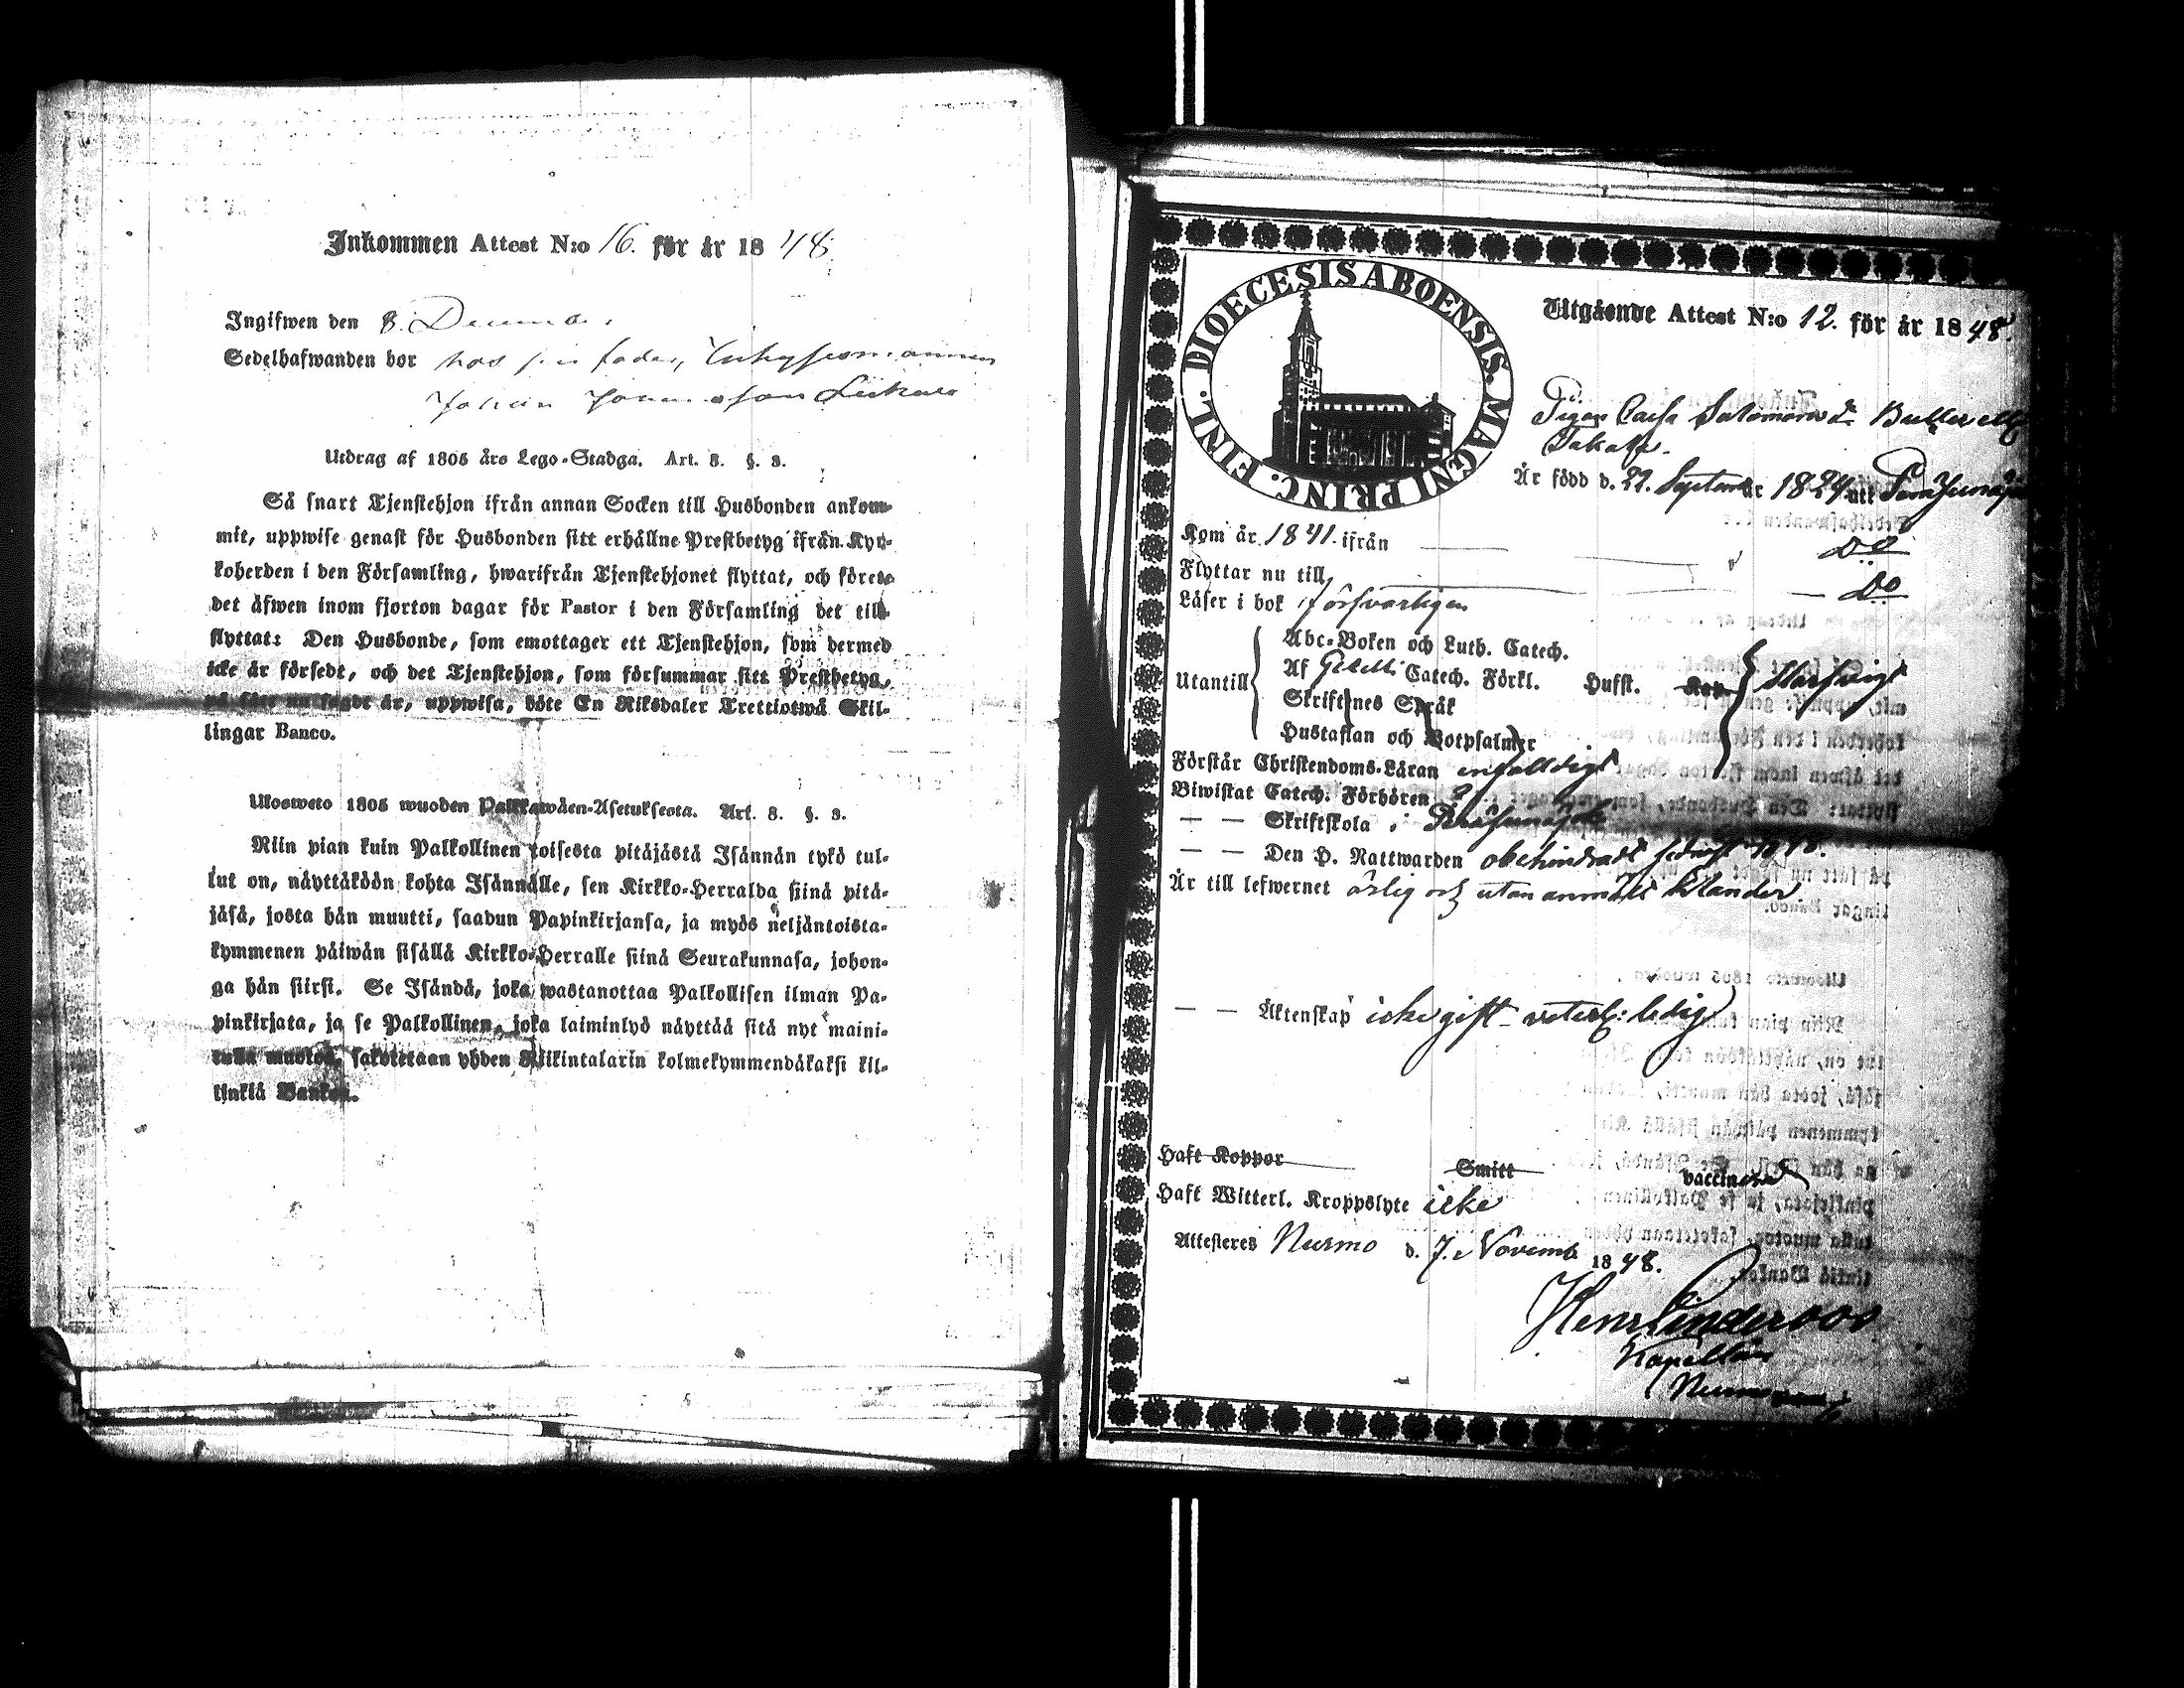 Inkommen Attest N:o 16. för år 1848.
Ingifwen den 8. December
Sedelhafwanden bor hos sin fader, Inhysesmannen
Johan
Utdrag af 1805 års Lego-Stadga. Art. 8. §. 3.
Så snart Tjenstehjon ifrån annan Socken till Husbonden ankom-
mit, uppwise genast för Husbonden sitt erhållne Prestbetyg ifrån Kyr-
koherden i den Församling, hwarifrån Tjenstehjonet flyttat, och förete
det äfwen inom fjorton dagar för Pastor i den Församling det till-
flyttat: Den Husbonde, som emottager ett Tjenstehjon, som dermed
icke är försedt, och det Tjenstehjon, som försummar sitt Prestbetyg,
på sätt nu sagdt är, uppwisa, böte En Riksdaler Trettiotwå Skil-
lingar Banco.
Ulosweto 1805 wuoden Palkkawäen-Asetuksesta. Art. 8. §. 3.
Niin pian kuin Palkollinen toisesta pitäjästä Isännän tykö tul-
lut on, näyttäköön kohta Isännälle, sen Kirkko-Herralda siinä pitä-
jäsä, josta hän muutti, saadun Papinkirjansa, ja myös neljäntoista-
kymmenen päiwän sisällä Kirkko-Herralle siinä Seurakunnasa, johon-
ga hän siirsi. Se Isändä, joka wastanottaa Palkollisen ilman Pa-
pinkirjata, ja se Palkollinen, joka laiminlyö näyttää sitä nyt maini-
tulla muotoa, sakotetaan yhden Riikintalarin kolmekymmendäkaksi kil-
linkiä Bankoa.
DIOECESIS ABOENSIS. MAGNI PRINC. FINL.
Utgående Attest N:o 12. för år 1848.
Pigan Caisa Salomonsdr
Är född d. 22. September 1824 att
Kom år 1841. ifrån Do
Flyttar nu till Do
Läser i bok försvarligen
Utantill
Abc-Boken och Luth. Catech.
Af Catech. Förkl. Husft.
Skriftenes Språk
Hustaflan och Botpsalmer
Förstår Christendoms-Läran enfalldigt
Biwistat Catech. Förhören
— — Skriftskola i
— — Den H. Nattwarden obehindradt sednast 1848.
Är till lefwernet ärlig och utan anmält klander
— — Äktenskap icke gift - veterl: ledig
Haft Koppor Smitt vaccinerad
Haft Witterl. Kroppslyte icke
Attesteras Nurmo d. 7. Novemb 1848.
Henr Linderoos
Kapellan